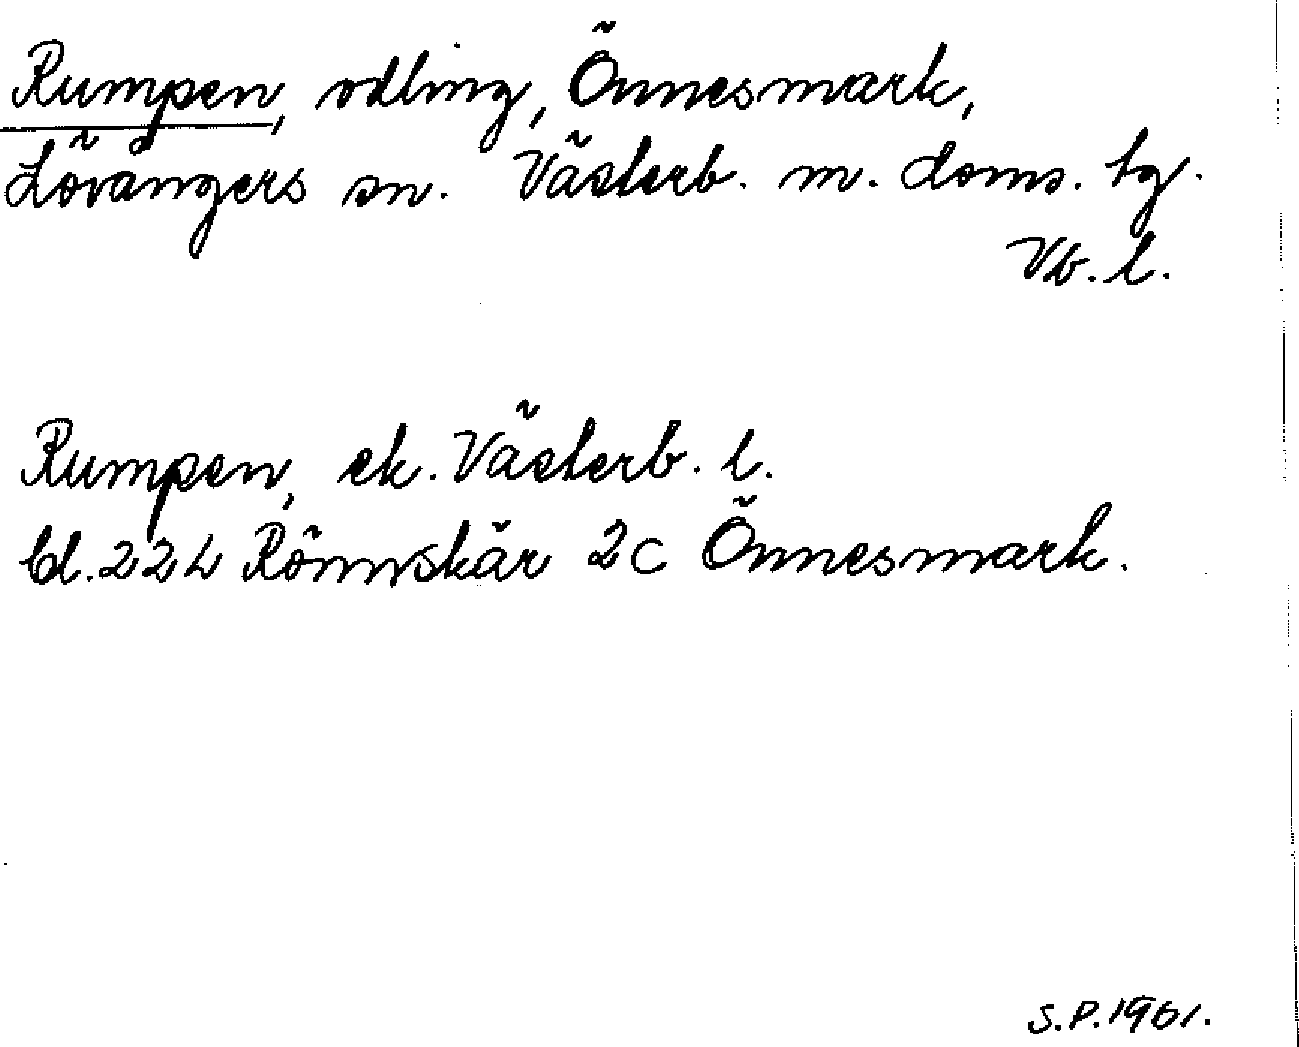 Rumpen, odling, Önnesmark,
Lövångers sn. Västerb. m. doms. tg.
Vb. l.
Rumpen, ek. Västerb. l.
bl. 22L Rönnskär 2c Önnesmark.
S.P. 1961.